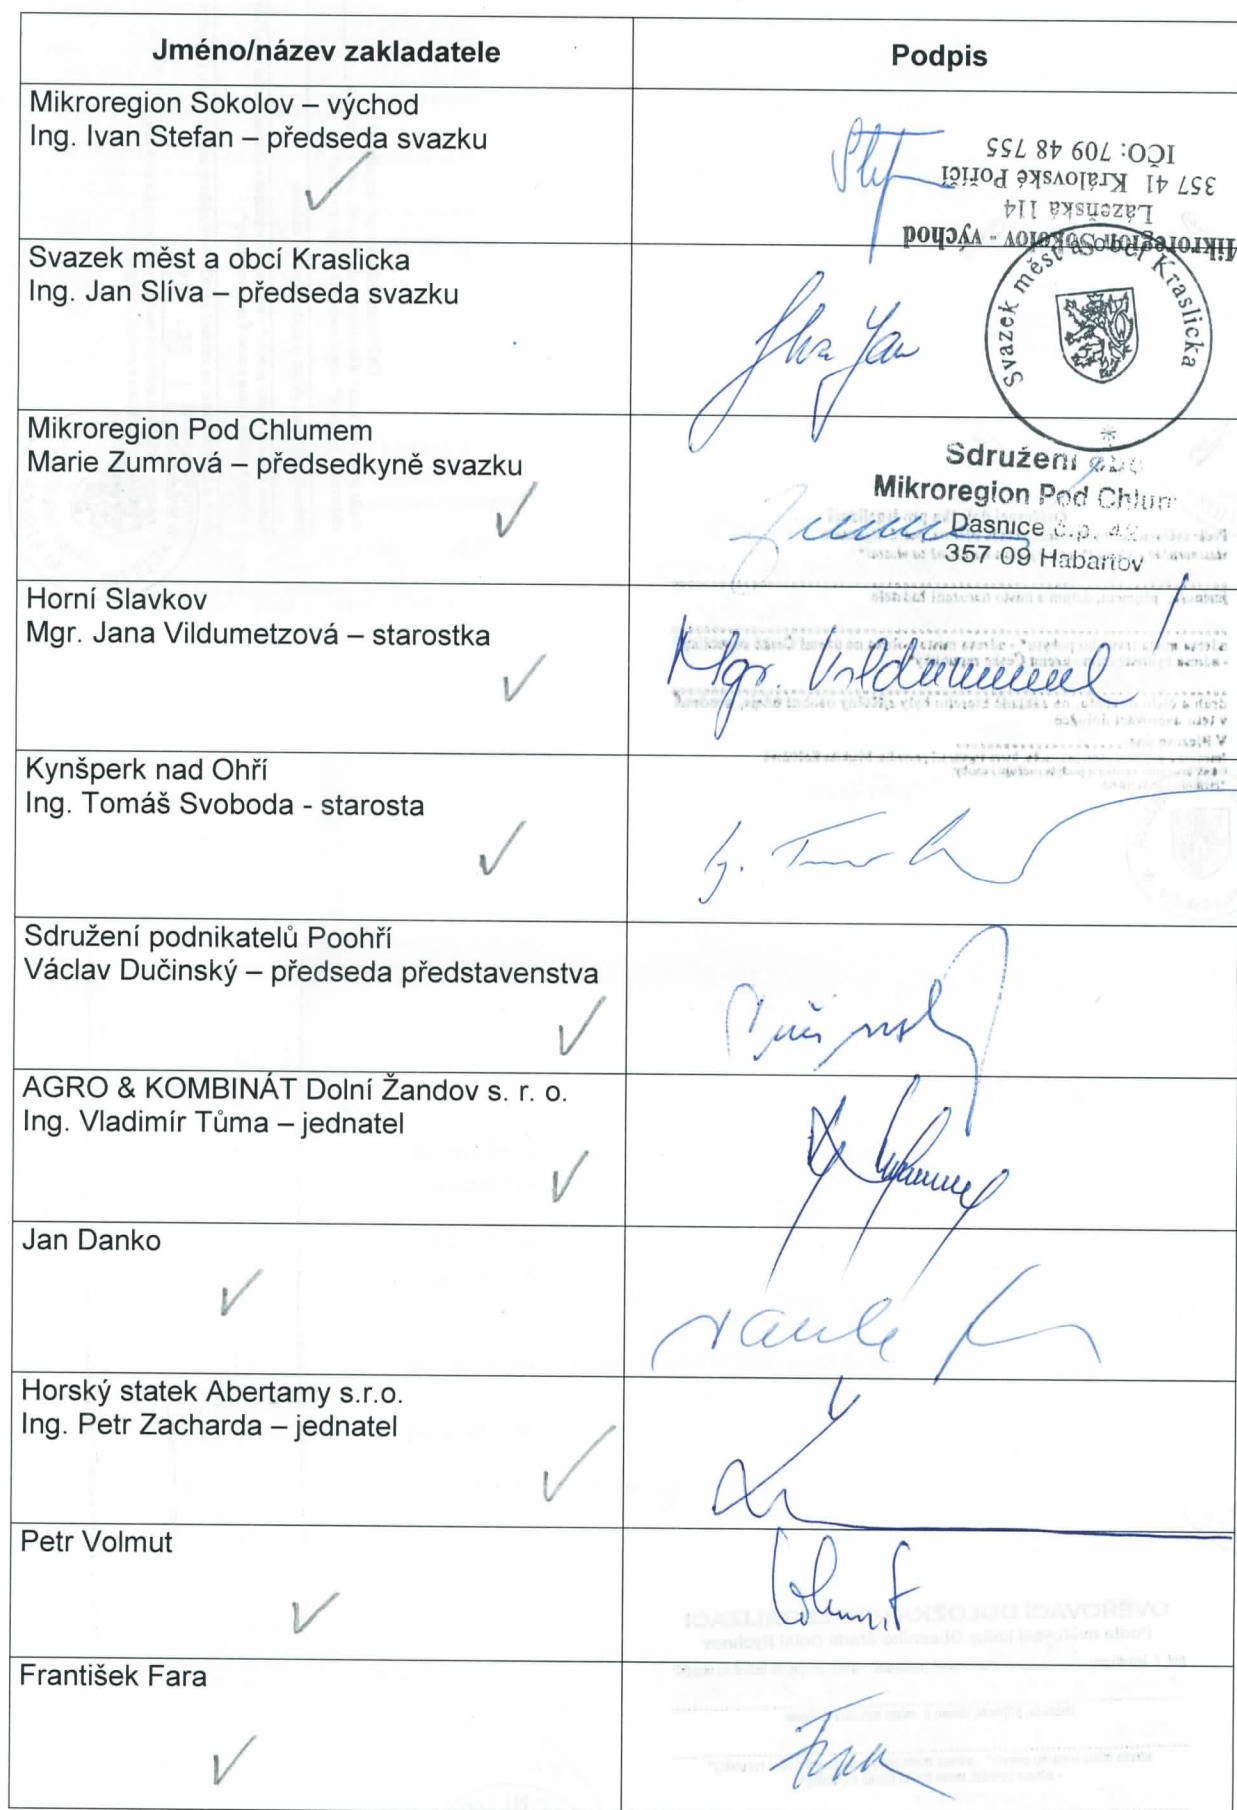 Jméno/název zakladatele
Podpis
Mikroregion Sokolov – východ
Ing. Ivan Stefan – předseda svazku
Mikroregion Sokolov - východ
Lázeňská 114
357 41 Královské Poříčí
IČO: 709 48 755
Svazek měst a obcí Kraslicka
Ing. Jan Slíva – předseda svazku
Svazek měst a obcí Kraslicka
Mikroregion Pod Chlumem
Marie Zumrová – předsedkyně svazku
Sdružení
Mikroregion Pod
Dasnice č.p.
357 09 Habartov
Horní Slavkov
Mgr. Jana Vildumetzová – starostka
Mgr.
Kynšperk nad Ohří
Ing. Tomáš Svoboda - starosta
Sdružení podnikatelů Poohří
Václav Dučinský – předseda představenstva
AGRO & KOMBINÁT Dolní Žandov s. r. o.
Ing. Vladimír Tůma – jednatel
Jan Danko
Horský statek Abertamy s.r.o.
Ing. Petr Zacharda – jednatel
Petr Volmut
František Fara